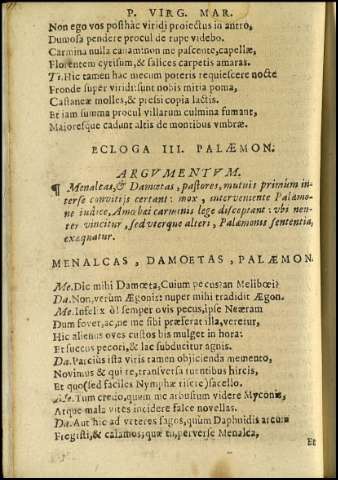 P. VIRG. MAR.
Non ego vos posthac viridi proiectus in antro,
Dumosa pendere procul de rupe videbo.
Carmina nulla canam: non me pascente, capellæ,
Florentem cytisum, & salices carpetis amaras.
Ti. Hic tamen hac mecum poteris requiescere nocte
Fronde super viridi: sunt nobis mitia poma,
Castaneæ molles, & pressi copia lactis.
Et iam summa procul villarum culmina fumant,
Maioresque cadunt altis de montibus vmbræ.
ECLOGA III. PALÆMON.
ARGVMENTVM.
¶ Menalcas, & Damœtas, pastores, mutuis primùm in-
terse convitiis certant: mox, interveniente Palæmo-
ne iudice, Amœbæi carminis lege disceptant: vbi neu-
ter vincitur, sed vterque alteri, Palæmonis sententia,
exæquatur.
MENALCAS, DAMOETAS, PALÆMON.
Me. Dic mihi Damœta, Cuium pecus? an Melibœi?
Da. Non, verùm Ægonis: nuper mihi tradidit Ægon.
Me. Infelix ô! semper ovis pecus, ipse Neæram
Dum fovet, ac, ne me sibi præferat illa, veretur,
Hic alienus oves custos bis mulget in hora:
Et succus pecori, & lac subducitur agnis.
Da. Parciùs ista viris tamen objicienda memento,
Novimus & qui te, transversa tuentibus hircis,
Et quo (sed faciles Nymphæ risere) sacello.
Me. Tum credo, quum me arbustum videre Myconis,
Atque mala vites incidere falce novellas.
Da. Aut hic ad veteres fagos, quùm Daphnidis arcum
Fregisti, & calamos, quæ tu, perverse Menalca,
Et